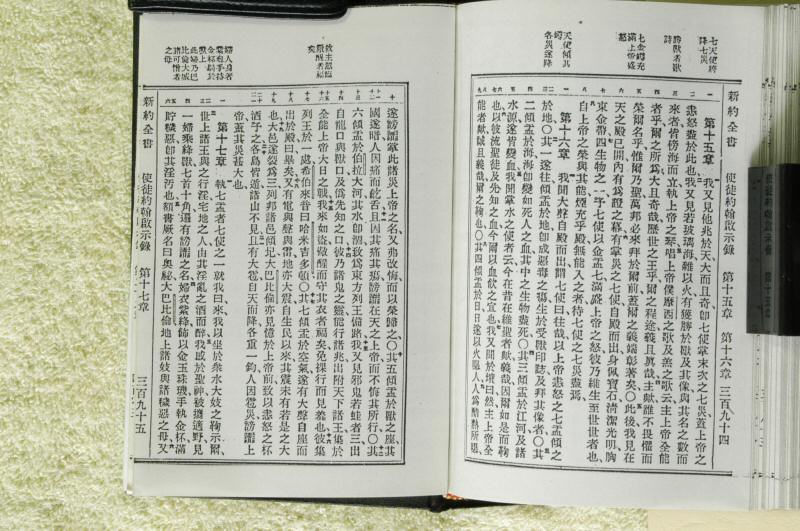 七天使終
降七災
勝獸者歌
詩
七金罇充
滿上帝盛
怒
天使傾其
罇各災遂降
新約全書 使徒約翰啟示錄 第十五章 第十六章 三百九十四
第十五章 我又見他兆於天大而且奇卽七使掌末次之七災蓋上帝之
恚怒盡於此也我又見若玻璃海雜以火有獲勝於獸及其像與其名之數而
來者皆傍海而立執上帝之琴唱上帝僕摩西之歌及羔之歌云主上帝全能
者乎爾之所爲大且奇哉歷世之王乎爾之程途義且眞哉主歟誰不畏懼而
榮爾名乎惟爾乃聖萬邦必來拜於爾前蓋爾之義端彰著矣〇此後我見在
天之殿已開內有爲證之幕有掌災之七使自殿而出身佩寶石清潔光明胸
束金帶四生物之一予七使以金盂七滿盛上帝之怒彼乃維生至世世者也
自上帝之榮與其能煙充乎殿無能入之者待七使之七災盡焉
第十六章 我聞大聲自殿而出謂七使曰往哉以上帝恚怒之七盂傾之
於地〇其一遂往傾盂於地卽成惡毒之瘍生於受獸印誌及拜其像者〇其
二傾盂於海海卽變如死人之血其中之生物盡死〇其三傾盂於江河及諸
水源遂皆變血我聞掌水之使者云今在昔在維聖者歟義哉因爾如是而鞫
也以彼流聖徒及先知之血今爾以血飲之宜也我又聞於壇曰然主上帝全
能者歟誠且義哉爾之鞫也〇其四傾盂於日日遂以火爆人人爲酷熱所爆
救主忽臨
儆醒者福
矣
婦人身着
紫袍手持
金杯騎於
獸上
此婦乃巴
比倫大城
諸可憎者
之母
遂謗讟掌此諸災上帝之名又弗改悔而以榮歸之〇其五傾盂於獸之座其
國遂暗人因痛而齕舌且因其痛其瘍謗讟在天之上帝而不悔其所行〇其
六傾盂於伯拉大河其水卽涸致爲東方列王備路我又見邪鬼若蛙者三出
自龍口與獸口及僞先知之口彼乃諸鬼之靈能行諸兆出附天下諸王集於
全能上帝大日之戰我來如盜儆醒而守其衣者福矣免裸行而見羞也彼集
列王於一處希伯來音曰哈米吉多頓〇其七傾盂於空氣遂有大聲自座而
出於殿曰畢矣又有電與聲與雷地亦大震自生民以來其震未有若是之大
也大邑遂裂爲三列邦諸邑傾圮大巴比倫亦見憶於上帝前致以恚怒之杯
酒予之各島皆遁諸山不見且有大雹自天而降各重一鈞人因雹災謗讟上
帝蓋其災甚大也
第十七章 執七盂者七使之一就我曰來我以坐於衆水大妓之鞫示爾
世上諸王與之行淫宅地之人由其淫亂之酒而醉我感於聖神被攜適野見
一婦乘絳獸七首十角遍有謗讟之名婦衣紫絳飾以金玉珠璣手執金杯滿
貯穢惡卽其淫污也額書厥名曰奧祕大巴比倫地上諸妓與諸穢惡之母又
新約全書 使徒約翰啟示錄 第十七章 三百九十五